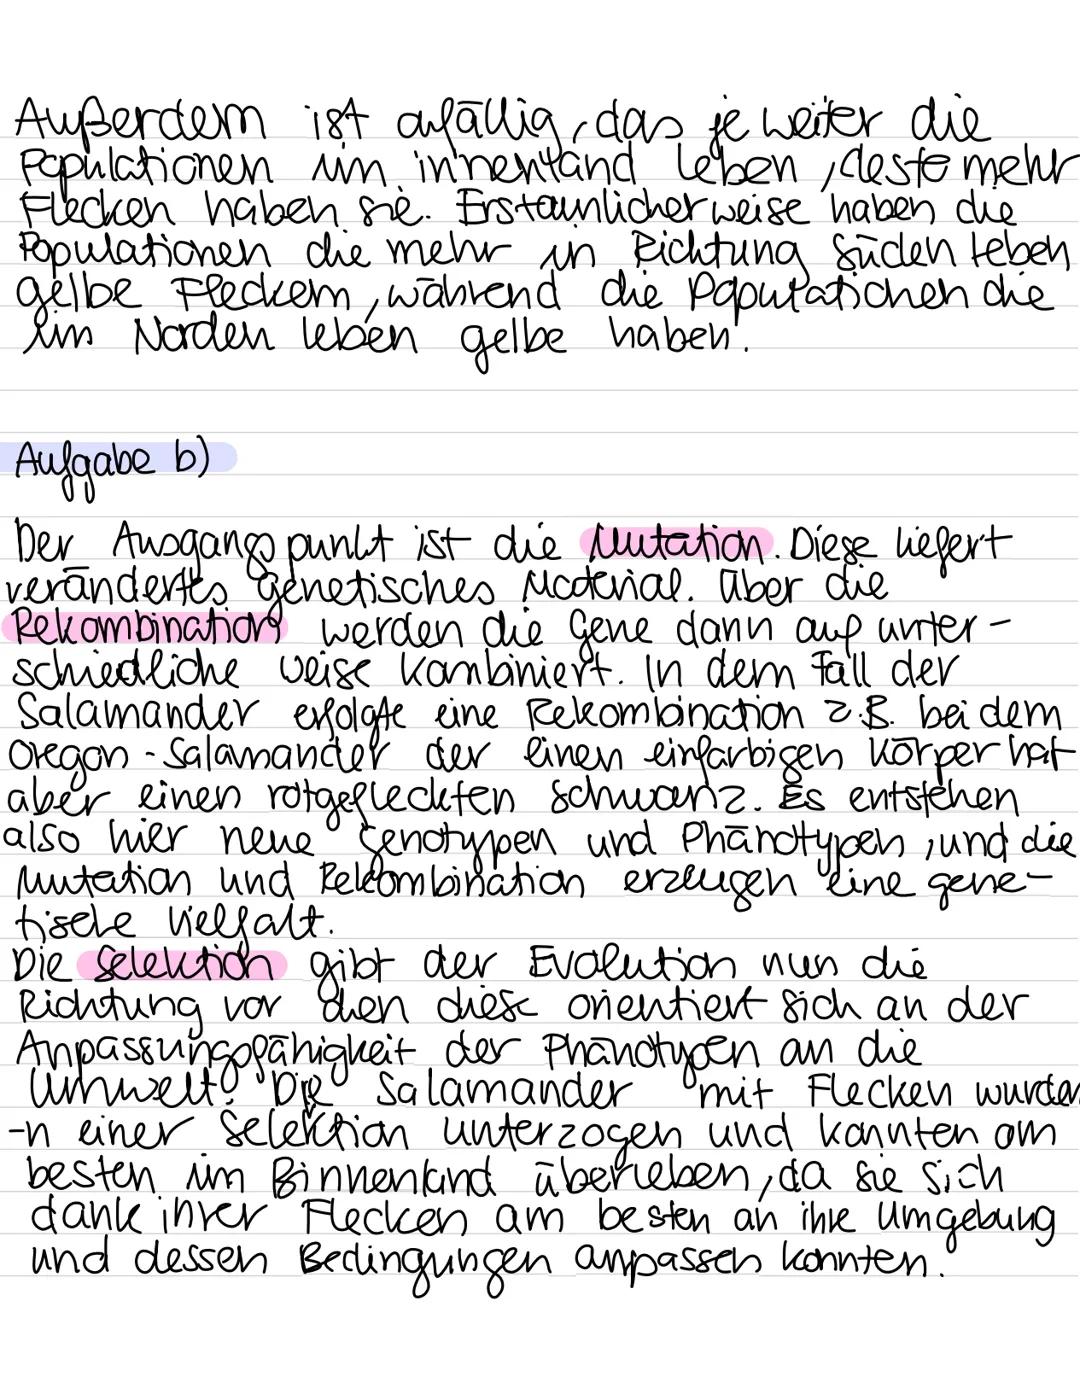 Außerdem ist aufällig, das je weiter die
Populationen im innenland leben, desto mehr
Flecken haben sie. Erstaunlicherweise haben die
Populationen die mehr in Richtung Süden leben
gelbe Fleckem, während die Populationen die
im Norden leben gelbe haben.
Aufgabe b)
Der Ausgangspunkt ist die Mutation. Diese liefert
verändertes genetisches Material. Über die
Rekombination werden die Gene dann auf unter-
schiedliche weise kombiniert. In dem Fall der
Salamander erfolgte eine Rekombination z.B. bei dem
Oregon-Salamander der einen einfarbigen Körper hat
aber einen rotgefleckten Schwanz. Es entstehen
also hier neue Genotypen und Phänotypen, und die
Mutation und Rekombination erzeugen eine gene-
tische Vielfalt.
Die Selektion gibt der Evolution nun die
Richtung vor den diese orientiert sich an der
Anpassungsfähigkeit der Phänotypen an die
Umwelt. Die Salamander mit Flecken wurde
-n einer Selektion unterzogen und konnten am
besten im Binnenland überleben, da sie sich
dank ihrer Flecken am besten an ihre Umgebung
und dessen Bedingungen anpassen konnten.